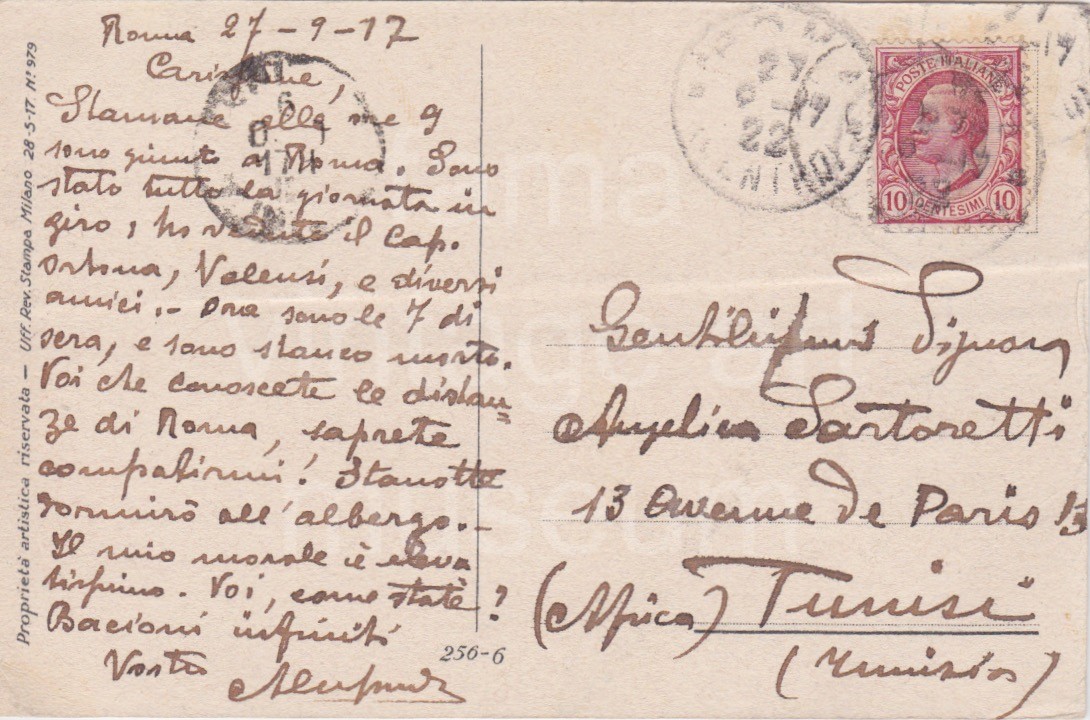 Roma 27-9-17
Carissime,
Stamane alle ore 9
sono giunto a Roma. Sono
stato tutto la giornata in
giro, ho veduto il Cap.
Ortona, Valensi, e diversi
amici.- Ora sono le 7 di
sera, e sono stanco morto.
Voi che conoscete le distan=
ze di Roma, saprete
compatirmi! Stanotte
dormirò all'albergo.-
Il mio morale è eleva
tissimo. Voi, come state?
Bacioni infiniti
Vostro
Proprietà artistica riservata - Uff. Rev. Stampa Milano 28-5-17. N° 979
256-6
POSTE ITALIANE
10 CENTESIMI 10
Gentilissima Signora
Angelica Sartoretti
13 Avenue de Paris 13
(Africa) Tunisi
(Tunisia)
vintage art
museum